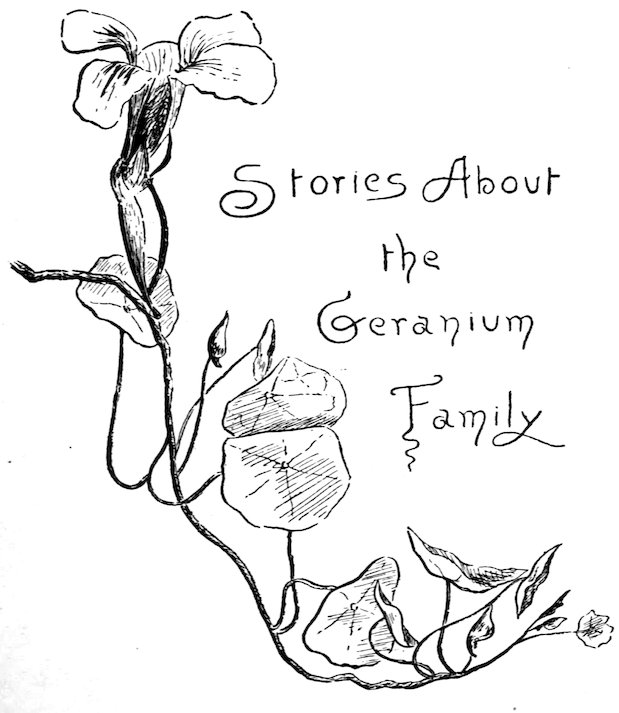 Stories About
the
Geranium
Family